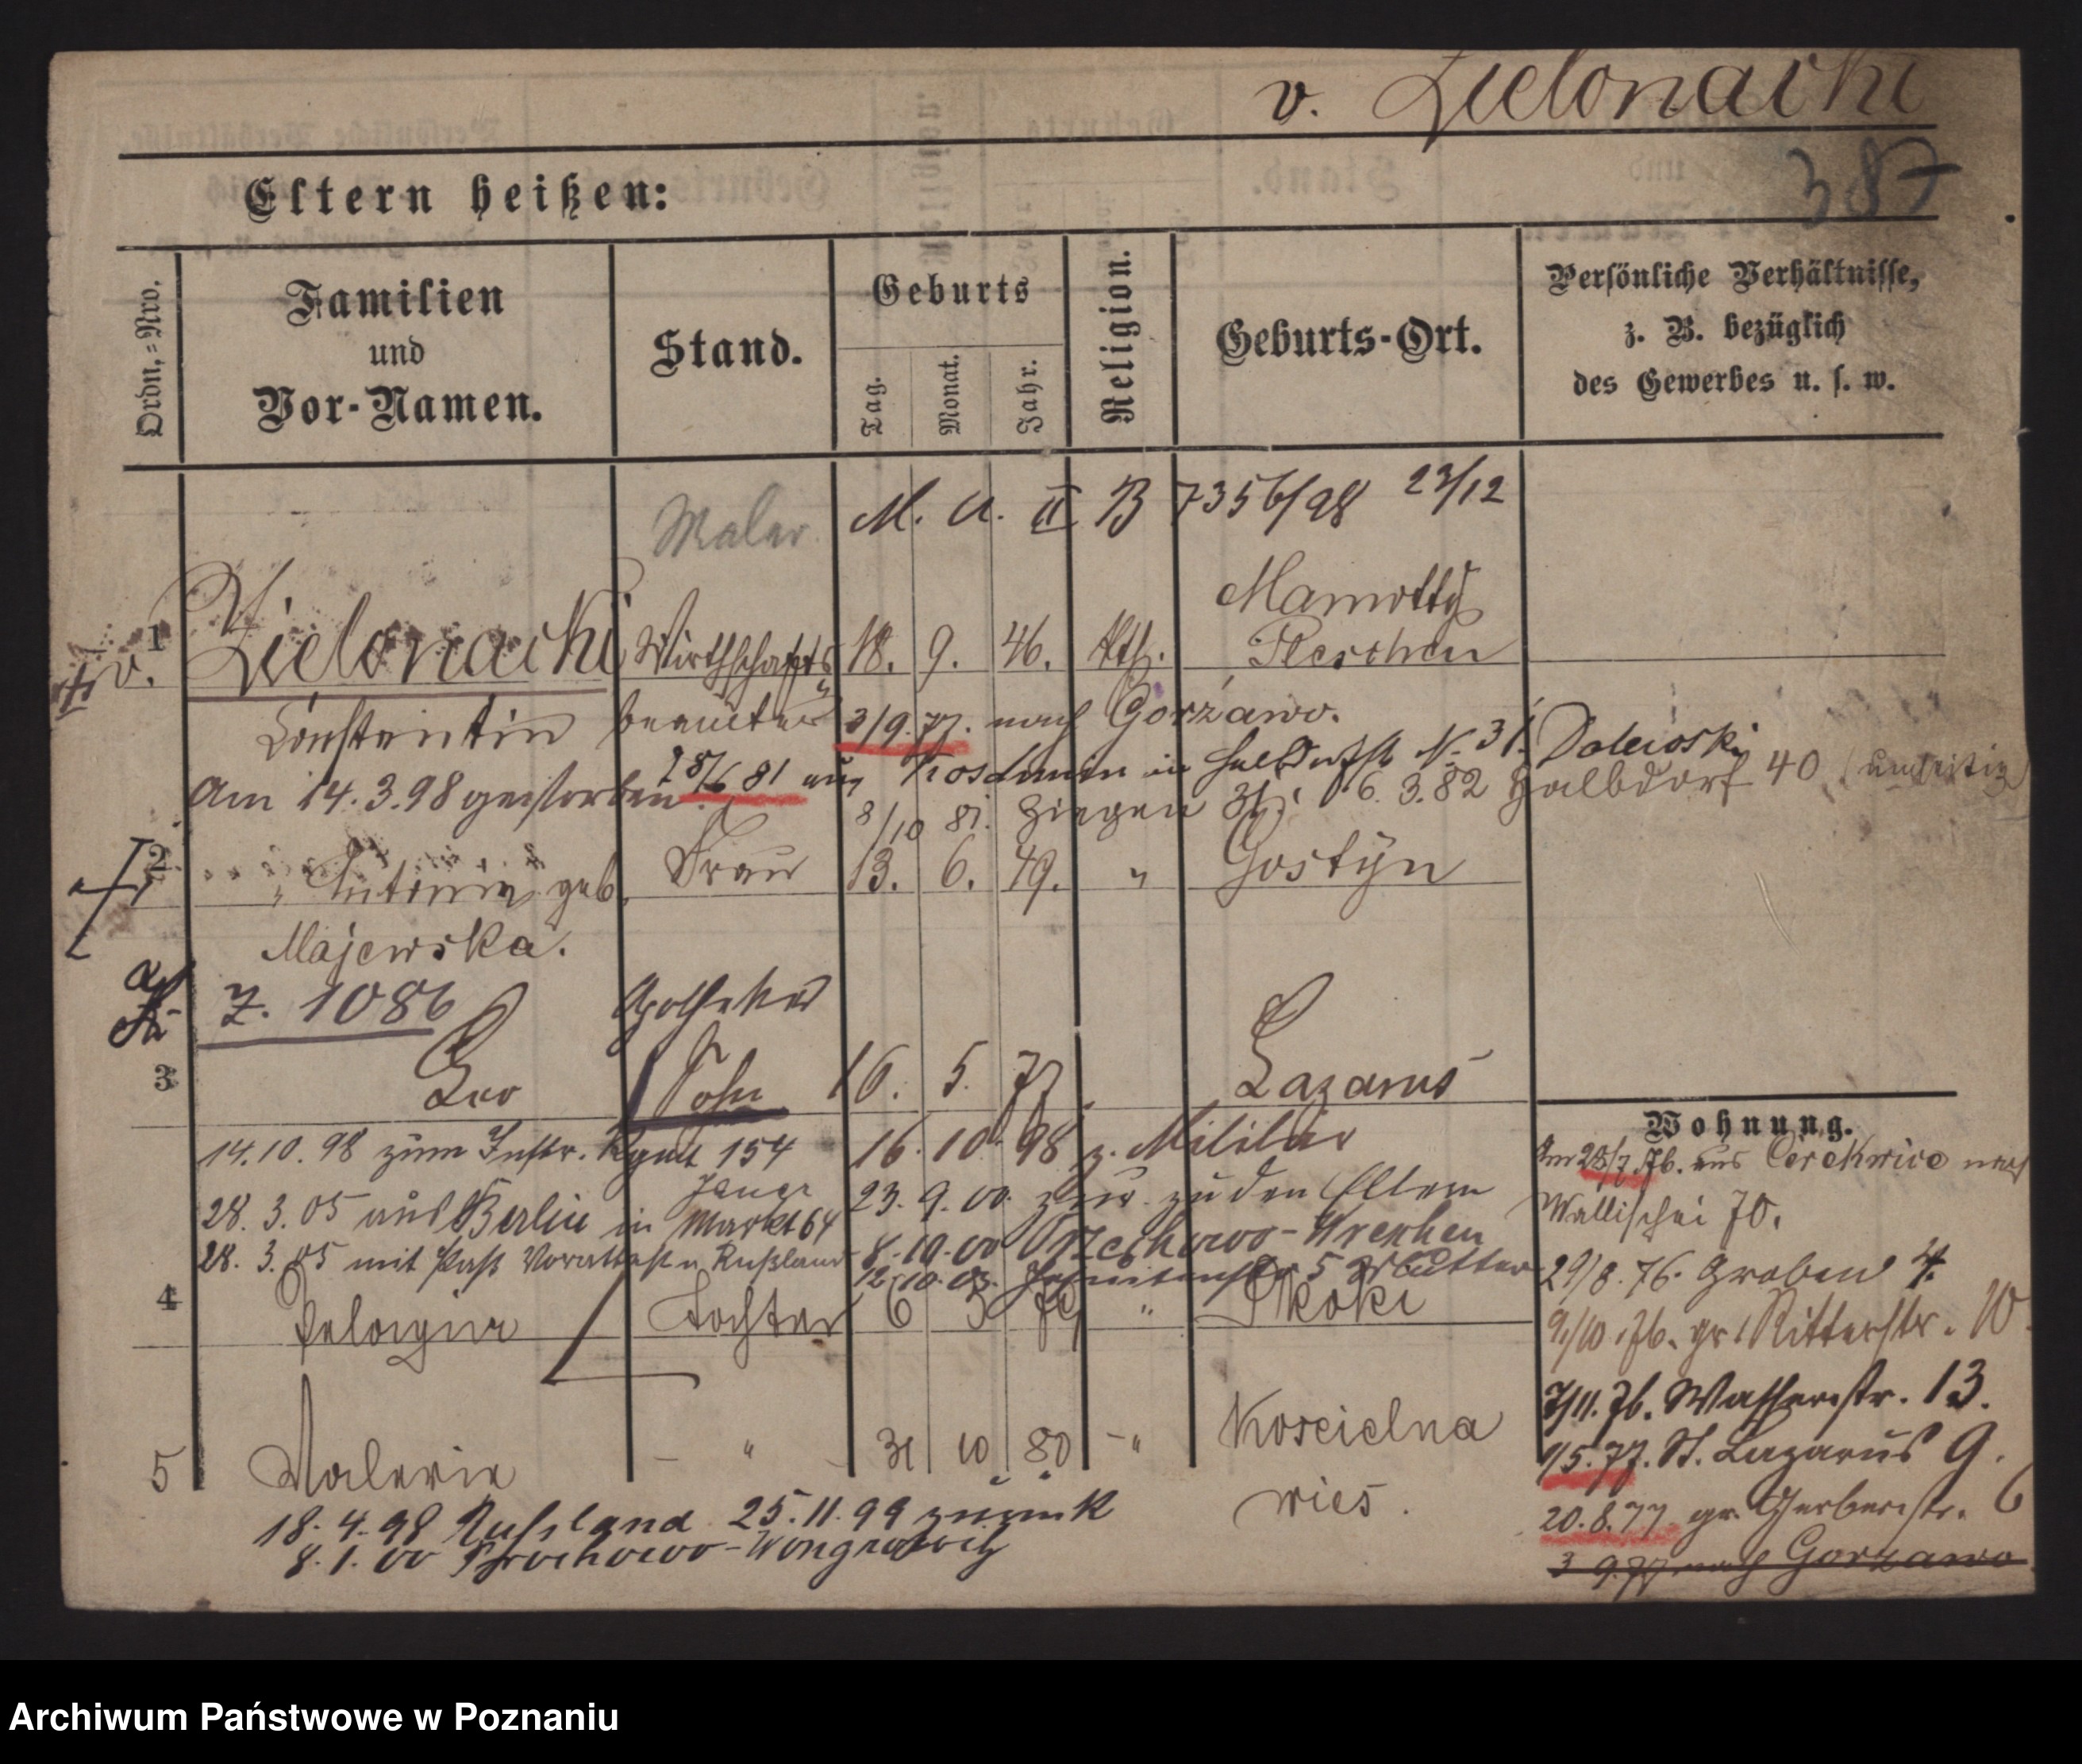 v. Zielonacki
387
Eltern heißen:
Ordn.-Nro.
Familien
und
Vor-Namen.
Stand.
Geburts
Tag.
Monat.
Jahr.
Religion.
Geburts-Ort.
Persönliche Verhältnisse,
z. B. bezüglich
des Gewerbes u. s. w.
Maler M. A. II B 7356/98 23/12
Mamotty
1 v. Zielonacki Wirthschafts 18. 9. 46. kth. Pleschen
Constantin beamter 3/9.77. nach Gorzawo.
Am 14.3.98 gestorben. 28/6 81 aus in Halbdorfst N. 31. Doleioski
8/10 81. 31, 16. 3. 82 Halbdorf 40 (umseitig)
2 " Antonia geb. Frau 13. 6. 49. " Gostyn
Majewska.
Z. 1086 Apotheker
3 Leo Sohn 16. 5. 77 Lazarus
14.10.98 zum Inftr. Rgmt 154 16. 10. 98 z. Militär
28. 3. 05 aus Berlin in Markt 64 23. 9. 00. zur. zu den Eltern
28. 3. 05 mit Paß n. Rußland 8. 10. 00 Orzechowo - Wreschen
12. 10. 03. Jesuitenstr 5 Mutter
4 Pelagia Tochter 6 3 79 " Skoki
5 Valerie - " - 31 10 80 - " Koscielna
wies.
18. 4. 98 Russland 25. 11. 99 zurück
8. 1. 00 Prochowo - Wongrowitz
Wohnung.
Am 28/7 76. aus Cerekwice nach
Wallischei 70.
29/8. 76. Graben 4.
9/10. 76. gr. Ritterstr. 10.
7/11. 76. Wasserstr. 13.
1/5. 77. St. Lazarus 9.
20. 8. 77 gr. Gerberstr. 6
3 9.77 nach Gorzawo
Archiwum Państwowe w Poznaniu